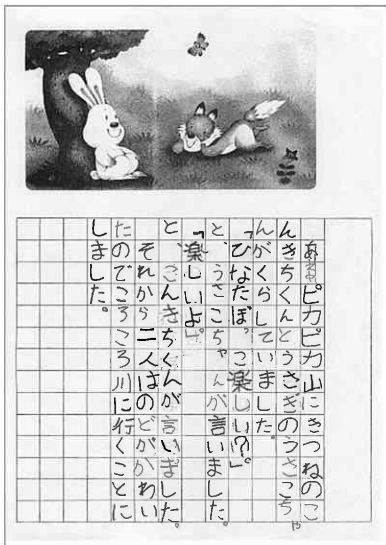 ピカピカ山にきつねのこ
んきちくんとうさぎのうさこちゃ
んがくらしていました。
「ひなたぼっこ楽しい?」。
と、うさこちゃんが言いました。
「楽しいよ。」
と、こんきちくんが言いました。
それから二人はのどがかわい
たのでころころ川に行くことに
しました。